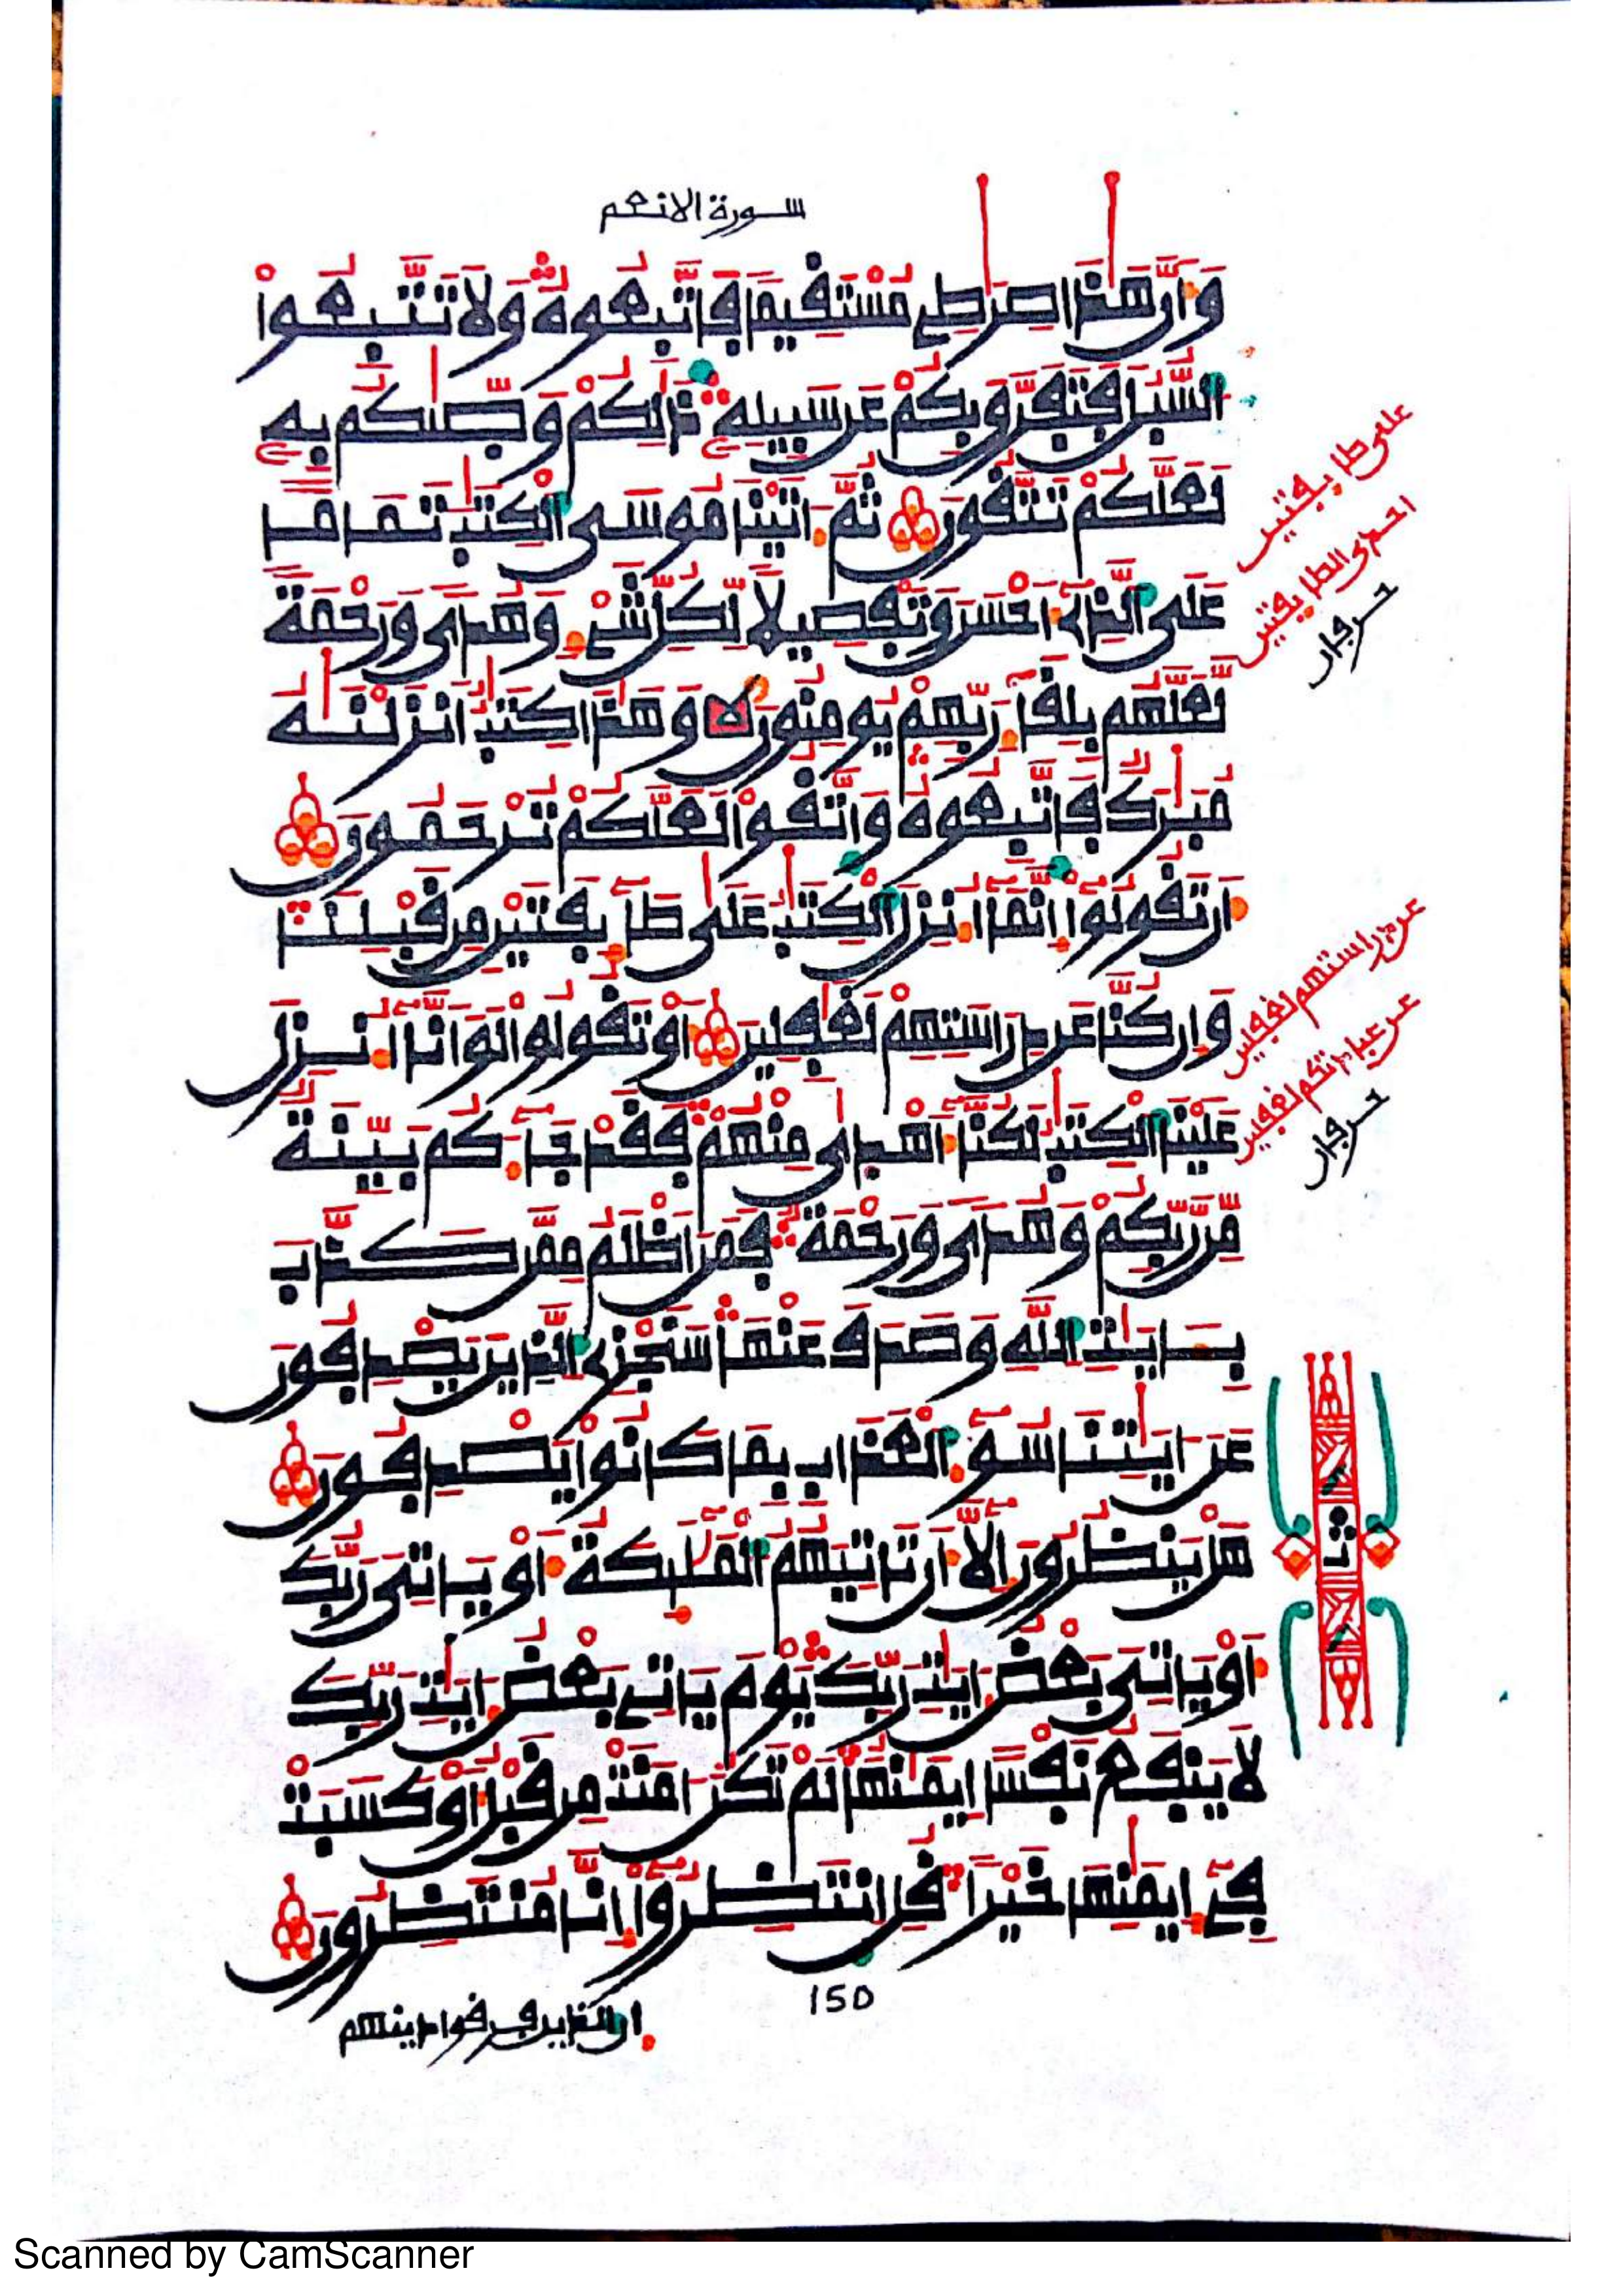 سورة الانعم
وَأَنَّ هَٰذَا صِرَٰطِے مُسْتَقِيمًا فَاتَّبِعُوهُ وَلَا تَتَّبِعُواْ
السُّبُلَ فَتَفَرَّقَ بِكُمْ عَن سَبِيلِهِۦ ذَٰلِكُمْ وَصَّىٰكُم بِهِۦ
لَعَلَّكُمْ تَتَّقُونَ ثُمَّ ءَاتَيْنَا مُوسَى الْكِتَٰبَ تَمَامًا
عَلَى الَّذِے أَحْسَنَ وَتَفْصِيلًا لِّكُلِّ شَےْءٍ وَهُدًى وَرَحْمَةً
لَّعَلَّهُم بِلِقَآءِ رَبِّهِمْ يُومِنُونَ وَهَٰذَا كِتَٰبٌ أَنزَلْنَٰهُ
مُبَٰرَكٌ فَاتَّبِعُوهُ وَاتَّقُواْ لَعَلَّكُمْ تُرْحَمُونَ
أَن تَقُولُواْ إِنَّمَا أُنزِلَ الْكِتَٰبُ عَلَىٰ طَآئِفَتَيْنِ مِن قَبْلِنَا
وَإِن كُنَّا عَن دِرَاسَتِهِمْ لَغَٰفِلِينَ أَوْ تَقُولُواْ لَوَ انَّا أُنزِلَ
عَلَيْنَا الْكِتَٰبُ لَكُنَّا أَهْدَىٰ مِنْهُمْ فَقَدْ جَآءَكُم بَيِّنَةٌ
مِّن رَّبِّكُمْ وَهُدًى وَرَحْمَةٌ فَمَنَ اظْلَمُ مِمَّن كَذَّبَ
بِـَٔايَٰتِ اللَّهِ وَصَدَفَ عَنْهَا سَنَجْزِے الَّذِينَ يَصْدِفُونَ
عَنَ ايَٰتِنَا سُوٓءَ الْعَذَابِ بِمَا كَانُواْ يَصْدِفُونَ
هَلْ يَنظُرُونَ إِلَّا أَن تَاتِيَهُمُ الْمَلَٰٓئِكَةُ أَوْ يَاتِىَ رَبُّكَ
أَوْ يَاتِىَ بَعْضُ ءَايَٰتِ رَبِّكَ يَوْمَ يَاتِے بَعْضُ ءَايَٰتِ رَبِّكَ
لَا يَنفَعُ نَفْسًا إِيمَٰنُهَا لَمْ تَكُنَ ءَامَنَتْ مِن قَبْلُ أَوْ كَسَبَتْ
فِے إِيمَٰنِهَا خَيْرًا قُلِ انتَظِرُواْ إِنَّا مُنتَظِرُونَ
150
ان الذين فرقوا دينهم
على طايفتين
احدى الطايفتين
حرفان
عن دراستهم لغفلين
عن عبادتكم لغفلين
حرفان
ثمن
Scanned by CamScanner